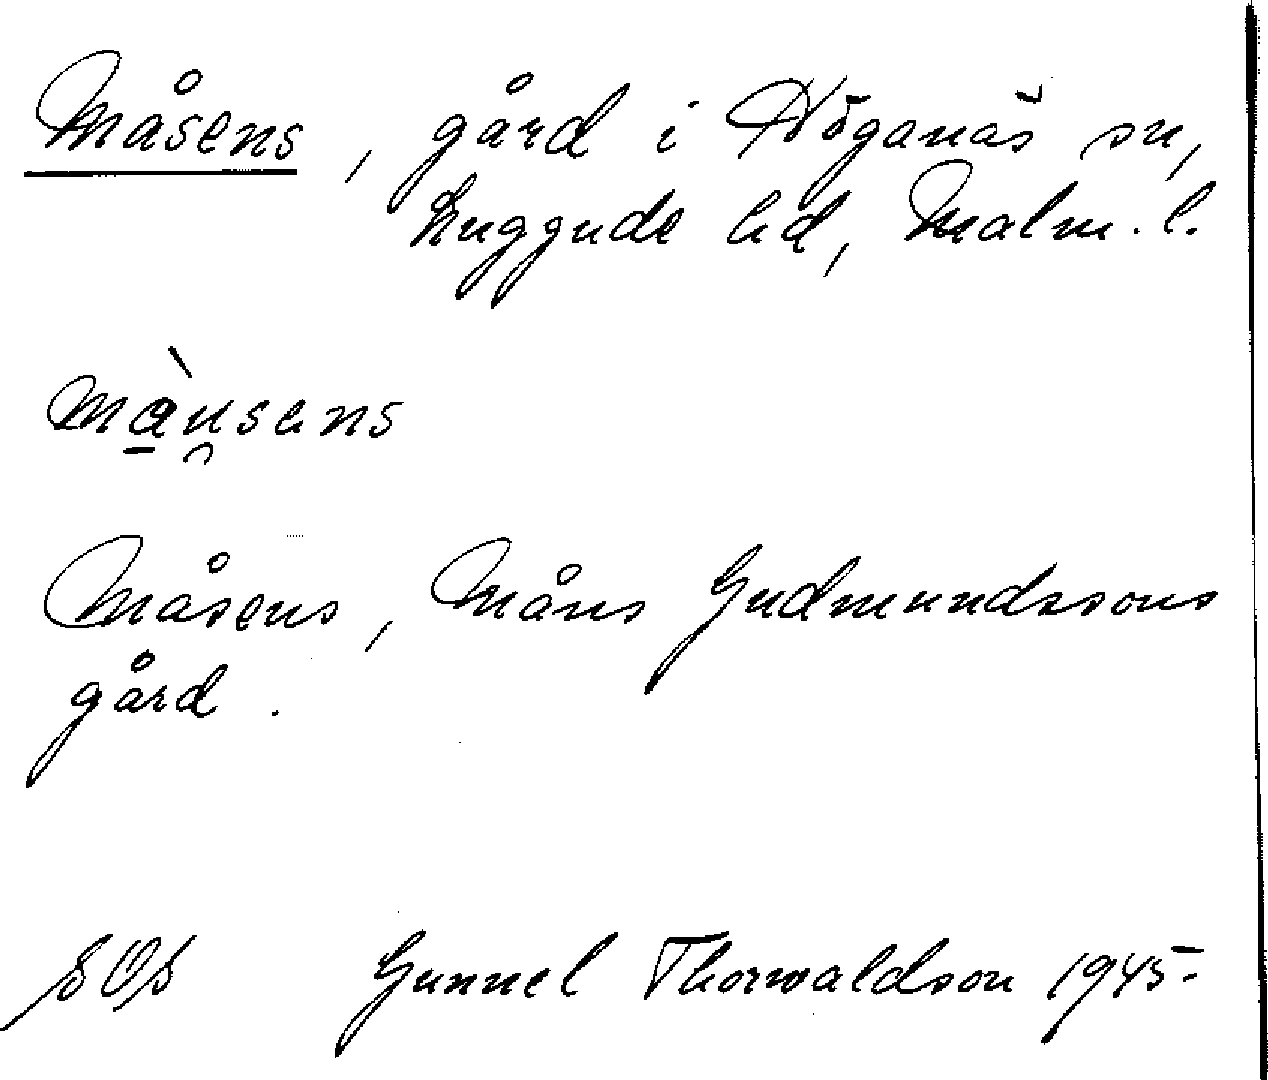 Måsens, gård i Höganäs sn,
Luggude hd, Malm. l.
màu̯sens
Måsens, Måns Gudmundssons
gård.
SOS Gunnel Thorwaldson 1945.